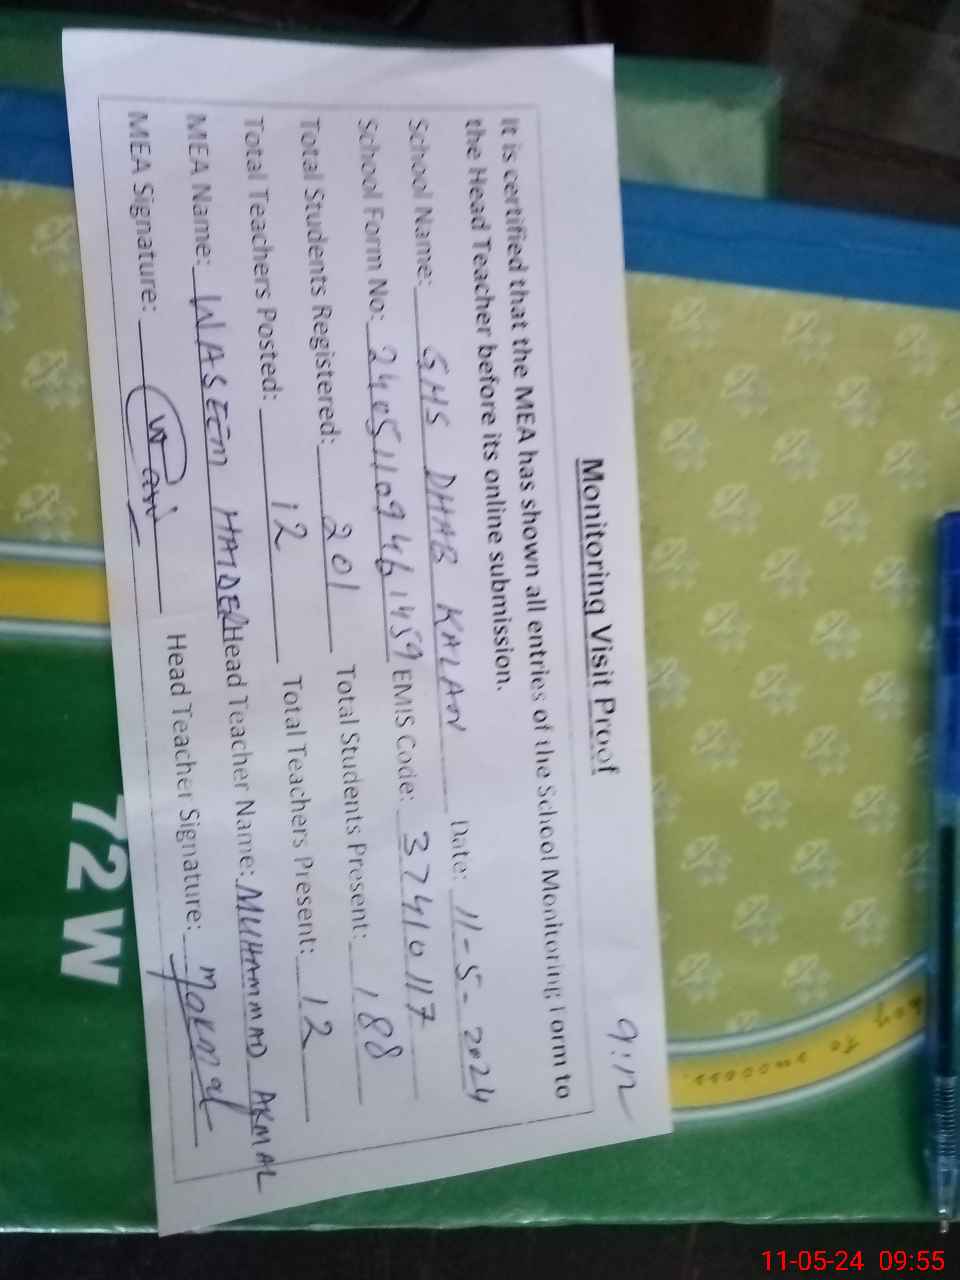 Monitoring Visit Proof
It is certified that the MEA has shown all entries of the School Monitoring Form to
the Head Teacher before its online submission.
School Name: GHS DHAB KALAN Date: 11-5-2024
School Form No: 24051109461459 EMIS Code: 37410117
Total Students Registered: 201 Total Students Present: 188
Total Teachers Posted: 12 Total Teachers Present: 12
MEA Name: WASEEM HAIDER Head Teacher Name: MUHAMMAD AKMAL
MEA Signature: Head Teacher Signature: makmal
72 W
Key To success.
11-05-24 09:55